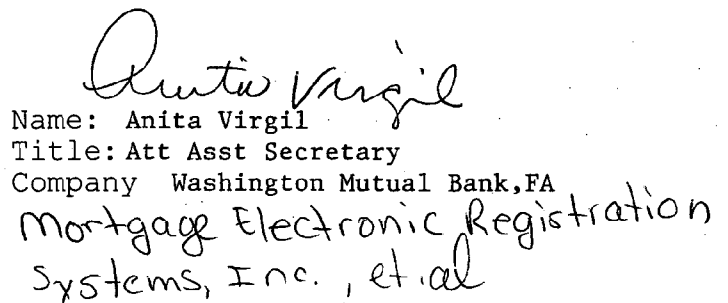 Anita Virgil
Name: Anita Virgil
Title: Att Asst Secretary
Company Washington Mutual Bank,FA
Mortgage Electronic Registration
Systems, Inc., et.al